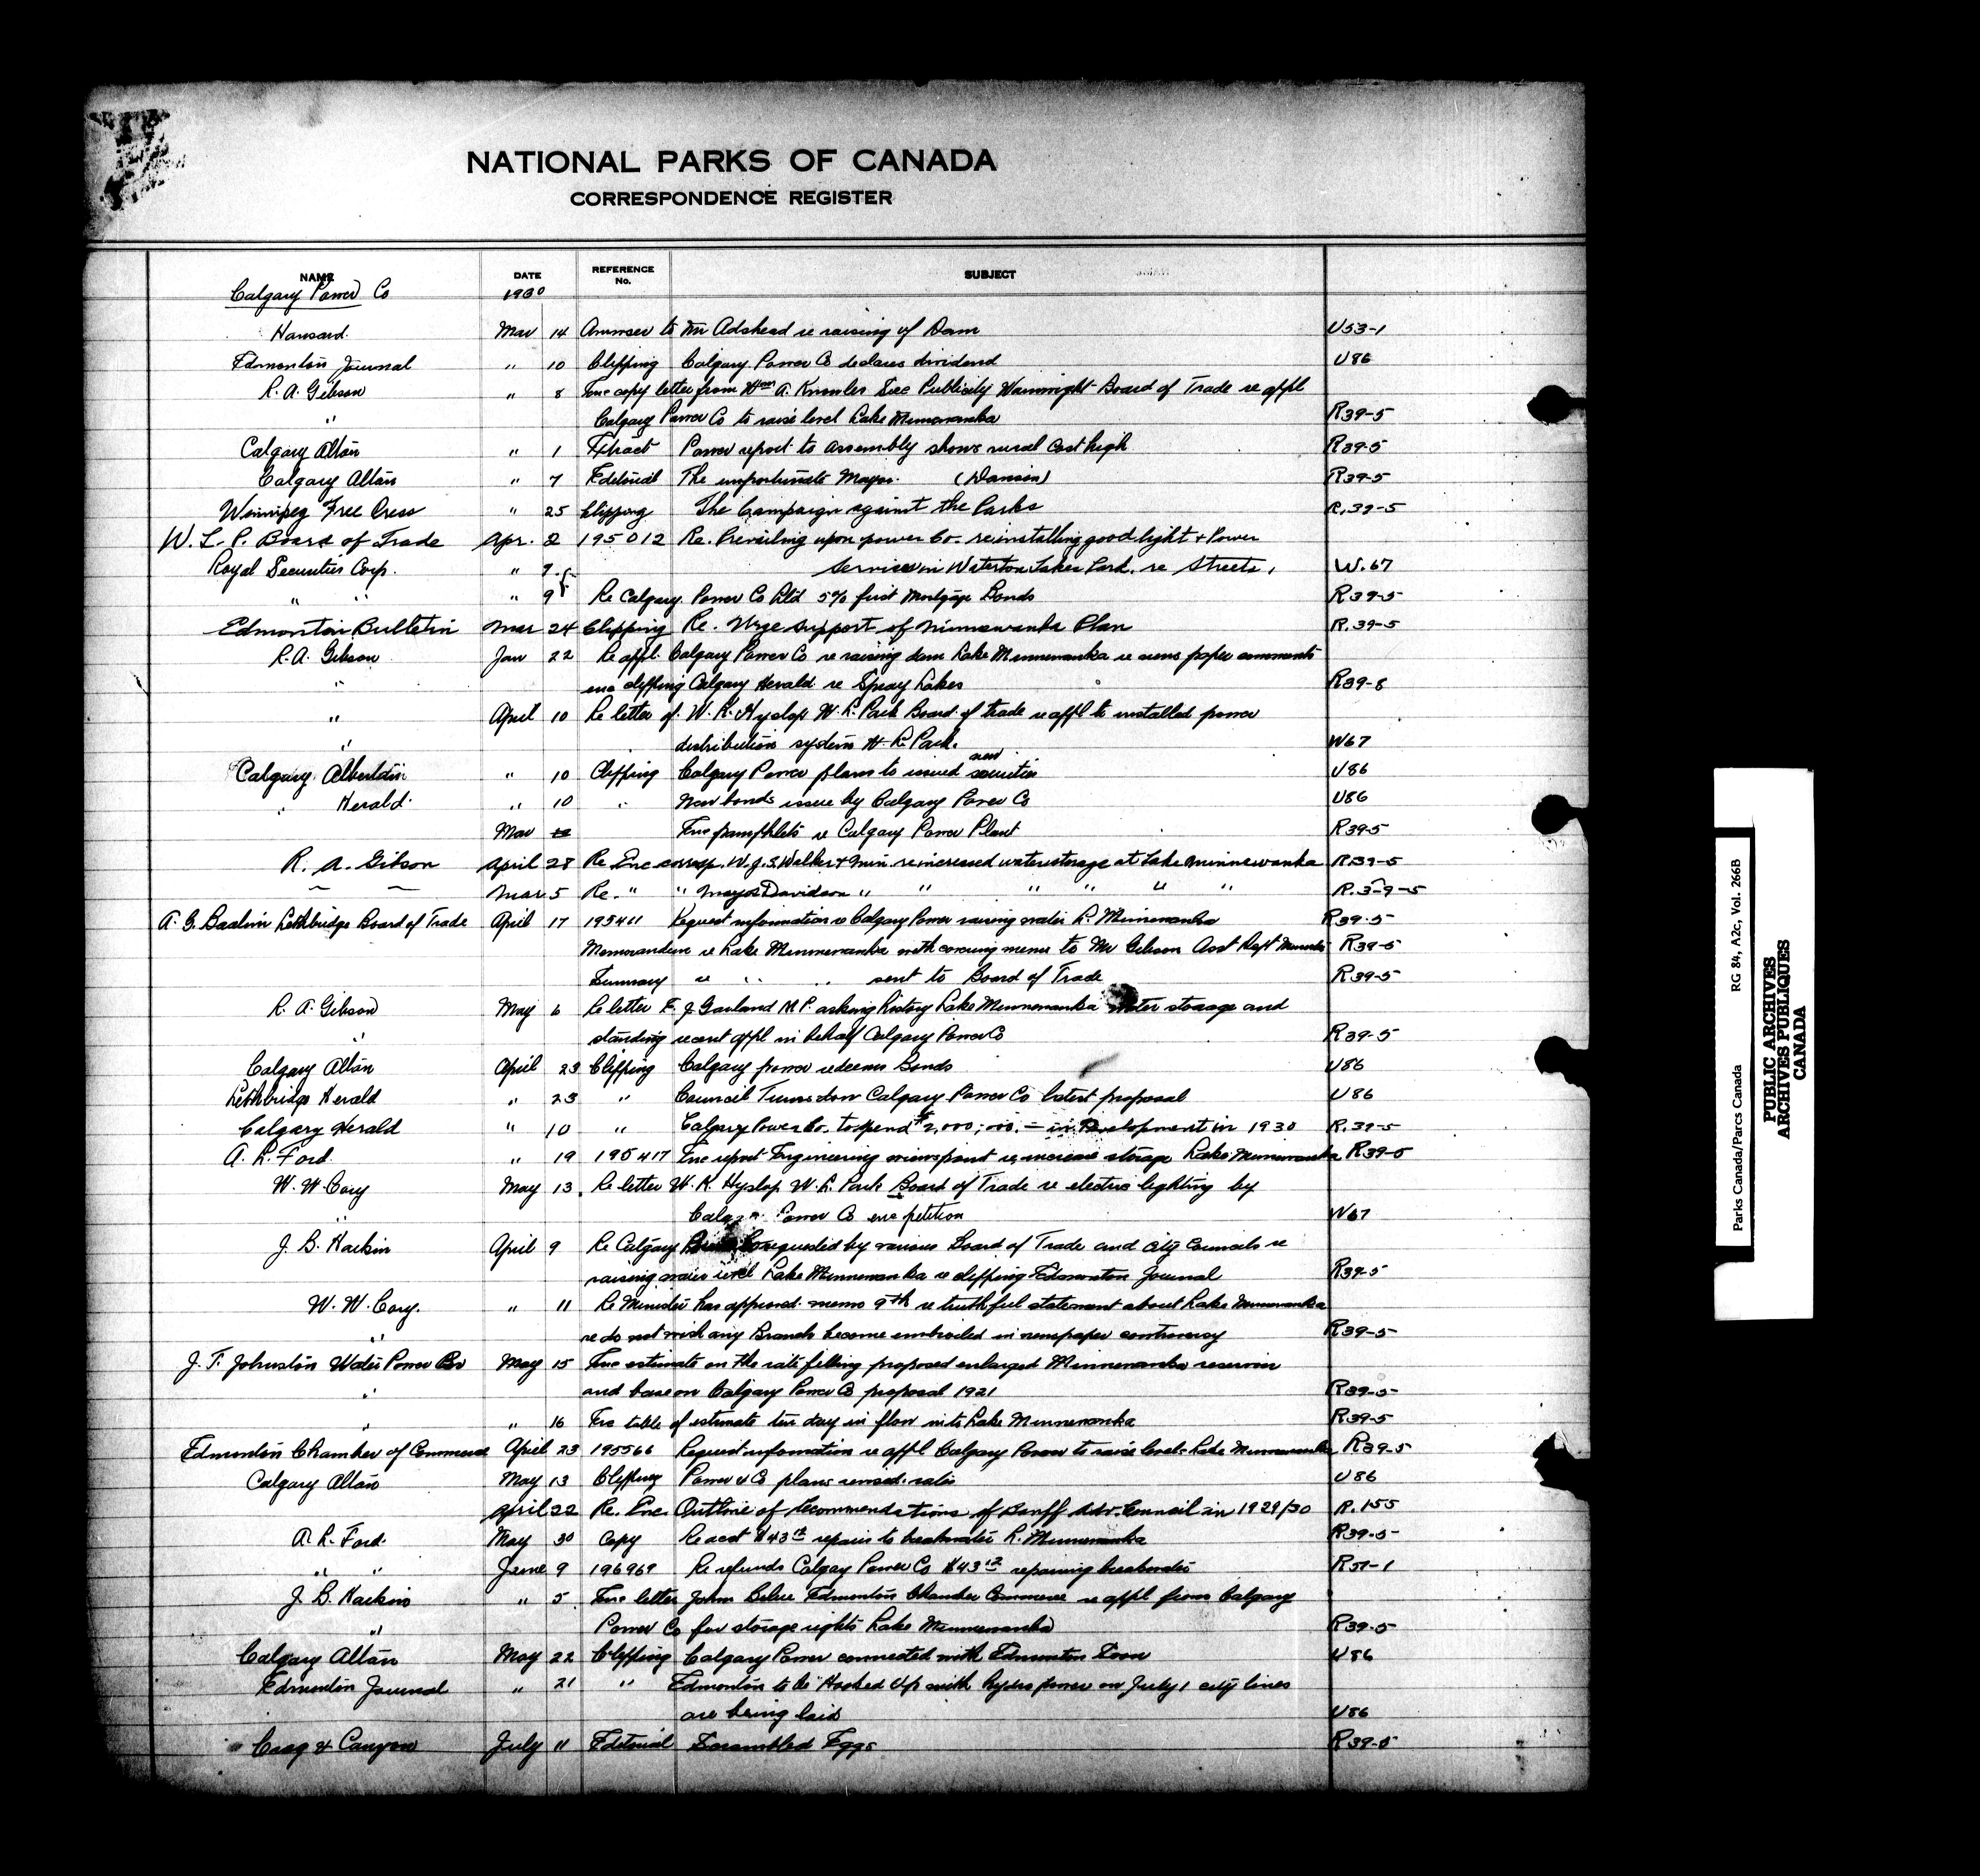 NATIONAL PARKS OF CANADA
CORRESPONDENCE REGISTER
NAME DATE REFERENCE No. SUBJECT
Calgary Power Co 1930
Hansard. Mar 14 Answer to Mr Adshead re raising of Dam U53-1
Edmonton Journal " 10 Clipping Calgary Power Co declares dividend U86
R. A. Gibson " 8 Enc copy letter from Wm A. Knowles Sec Publicity Wainwright Board of Trade re appl
" Calgary Power Co to raise level Lake Minnewanka R39-5
Calgary Altan " 1 Extract Power report to assembly shows rural cost high R39-5
Calgary Altan " 7 Editorial The unfortunate Mayor. R39-5
Winnipeg Free Press " 25 Clipping The Campaign against the Parks R.39-5
W. L. P. Board of Trade Apr. 2 195012 Re. Prevailing upon power Co. re installing good light & Power
Royal Securities Corp. " 7. Service in Waterton Lakes Park. re Streets. W.67
" " " 9 Re Calgary Power Co Ltd 5% first Mortgage Bonds R39-5
Edmonton Bulletin Mar 24 Clipping Re. Urge support of Minnewanka Plan R.39-5
R. A. Gibson Jan 22 Re appl. Calgary Power Co re raising dam Lake Minnewanka re news paper comments
" enc clipping Calgary Herald re Spray Lakes R39-8
" April 10 Re letter of W. K. Hyslop W. L. Park Board of trade re appl to installed power
" distribution system W. L. Park. W67
Calgary Albertan " 10 Clipping Calgary Power plans to issued new securities U86
" Herald. " 10 " New bonds issue by Calgary Power Co U86
Mar Enc pamphlets re Calgary Power Plant R39-5
R. A. Gibson April 28 Re Enc corresp. W.J.S. Walker & Min. re increased water storage at Lake Minnewanka R.39-5
" " Mar 5 Re. " " Mayor Davidson " " " " " " R.39-5
A. G. Baalim Lethbridge Board of Trade April 17 195411 Request information re Calgary Power raising water L. Minnewanka R39-5
Memorandum re Lake Minnewanka with covering memo to Mr Gibson Asst Dept Minister R39-5
Summary re " " sent to Board of Trade R39-5
R. A. Gibson May 6 Re letter E. J. Garland M.P. asking history Lake Minnewanka water storage and
" standing recent appl in behalf Calgary Power Co R39-5
Calgary Altan April 23 Clipping Calgary power redeems Bonds U86
Lethbridge Herald " 23 " Council Turns down Calgary Power Co latest proposal U86
Calgary Herald " 10 " Calgary Power Co. to spend $2,000,000.- in Development in 1930 R.39-5
A. L. Ford. " 19 195417 Enc report Engineering viewpoint re increase storage Lake Minnewanka R39-5
W. W. Cory May 13. Re letter W. K. Hyslop W. L. Park Board of Trade re electric lighting by
" Calgary Power Co enc petition W67
J. B. Harkin April 9 Re Calgary Power Co requested by various Board of Trade and City Councils re
raising water level Lake Minnewanka re clipping Edmonton Journal R39-5
W. W. Cory. " 11 Re Minister has approved memo 9th re truthful statement about Lake Minnewanka
" re do not wish any Branch become embroiled in newspaper controversy R39-5
J. T. Johnston Water Power Br May 15 Enc estimate on the rate filling proposed enlarged Minnewanka reservoir
" and base on Calgary Power Co proposal 1921 R39-5
" " 16 Enc table of estimate ten day in flow into Lake Minnewanka R39-5
Edmonton Chamber of Commerce April 23 195566 Request information re appl Calgary Power to raise level Lake Minnewanka R39-5
Calgary Altan May 13 Clipping Power Co plans revised rates U86
April 22 Re. Enc. Outline of Recommendations of Banff Adv. Council in 1929/30 R.155
A. L. Ford. May 30 Copy Re acct $43 repairs to breakwater L. Minnewanka R39-5
" " June 9 196969 Re refunds Calgary Power Co $43.12 repairing breakwater R57-1
J. B. Harkin " 5 Enc letter John Blue Edmonton Chamber Commerce re appl from Calgary
" Power Co for storage rights Lake Minnewanka R39-5
Calgary Altan May 22 Clipping Calgary Power connected with Edmonton Soon U86
Edmonton Journal " 21 " Edmonton to be Hooked Up with hydro power on July 1 city lines
are being laid U86
Crag & Canyon July 11 Editorial Scrambled Eggs R39-5
Parks Canada/Parcs Canada RG 84, A2c, Vol. 266B
PUBLIC ARCHIVES
ARCHIVES PUBLIQUES
CANADA